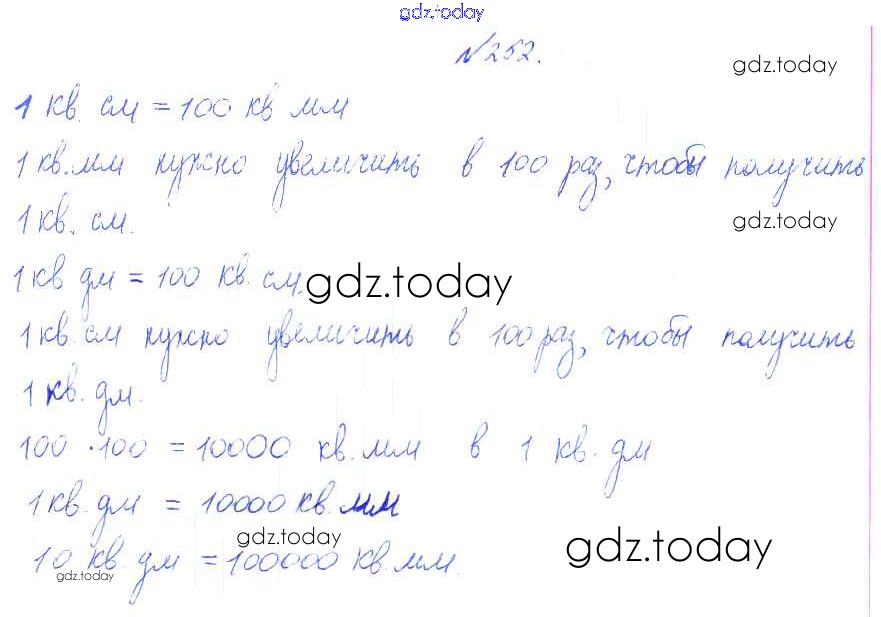 gdz.today
№252.
gdz.today
1 кв. см = 100 кв мм
1 кв.мм нужно увеличить в 100 раз, чтобы получить
1 кв. см.
gdz.today
1 кв дм = 100 кв. см.
gdz.today
1 кв. см нужно увеличить в 100 раз, чтобы получить
1 кв. дм.
100 · 100 = 10000 кв. мм в 1 кв. дм
1 кв. дм = 10000 кв. мм
gdz.today
gdz.today
10 кв. дм = 100000 кв. мм.
gdz.today